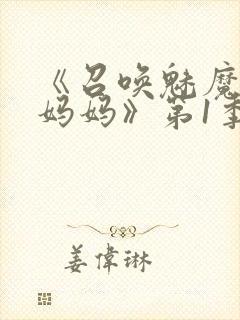 《召唤魅魔
妈妈》第1季
姜偉琳